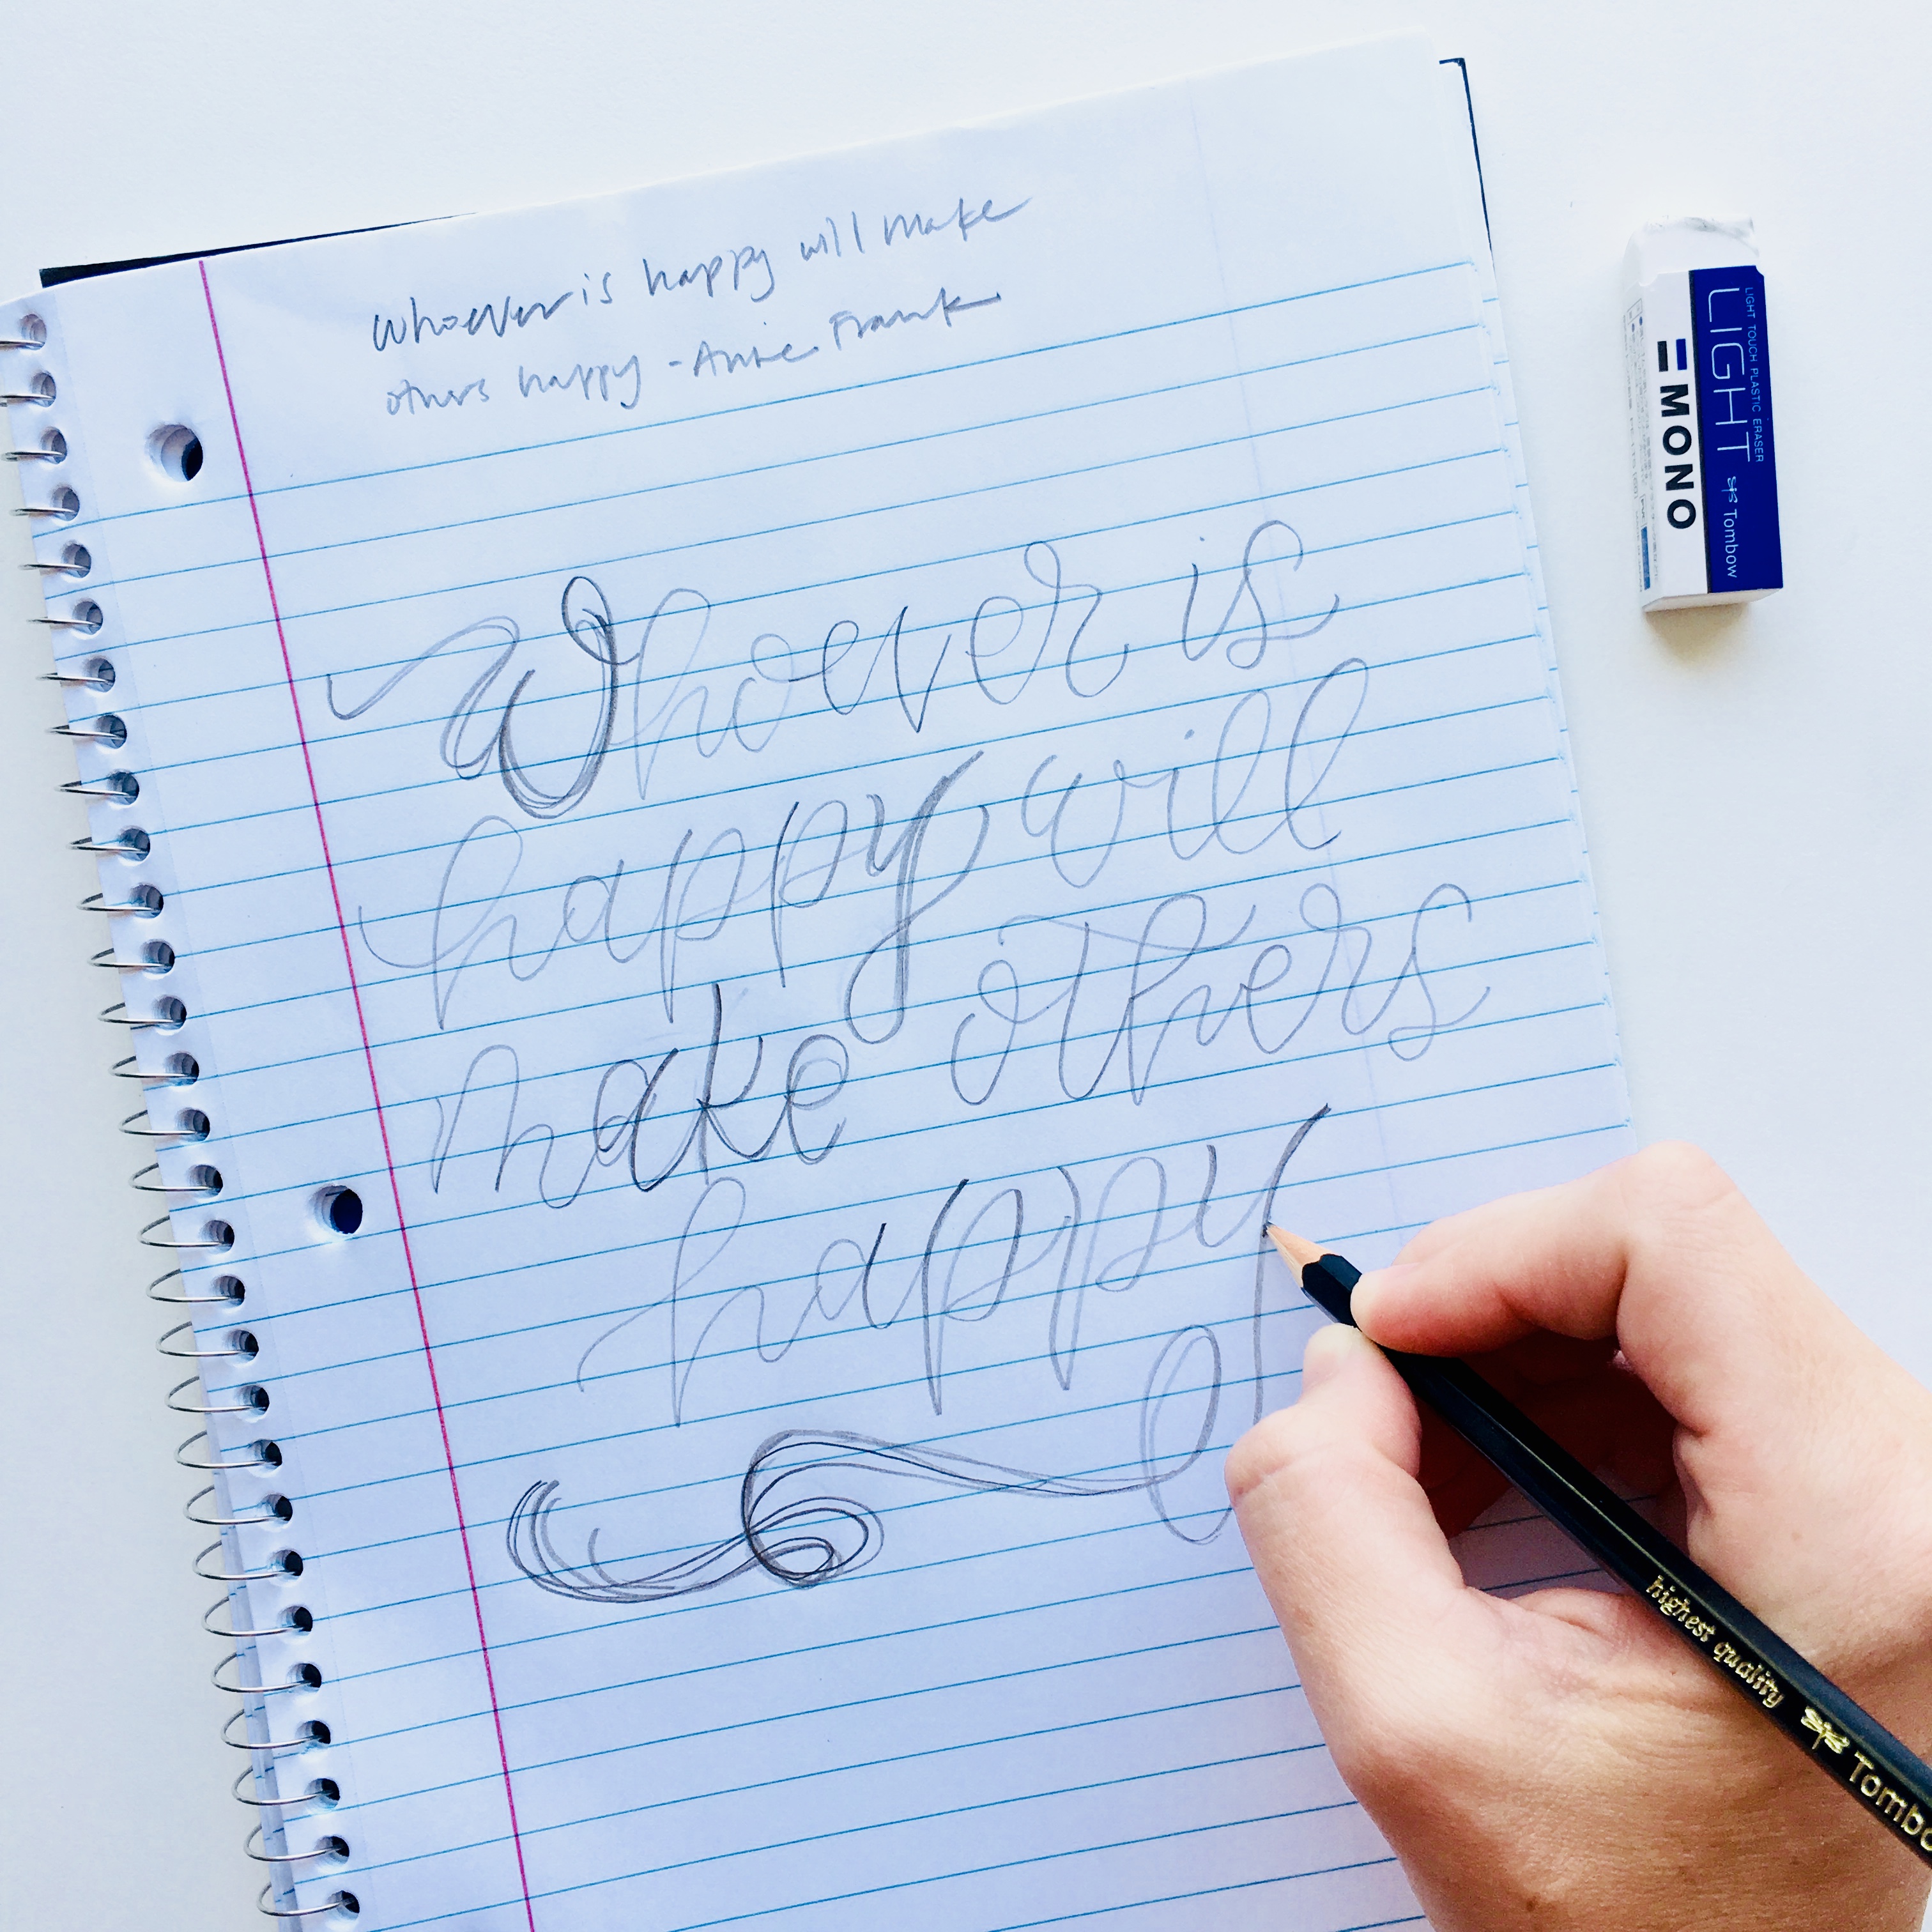 Whoever is happy will make
others happy - Anne Frank
Whoever is
happy will
make others
happy
LIGHT TOUCH PLASTIC ERASER
LIGHT Tombow
MONO
highest quality Tombo